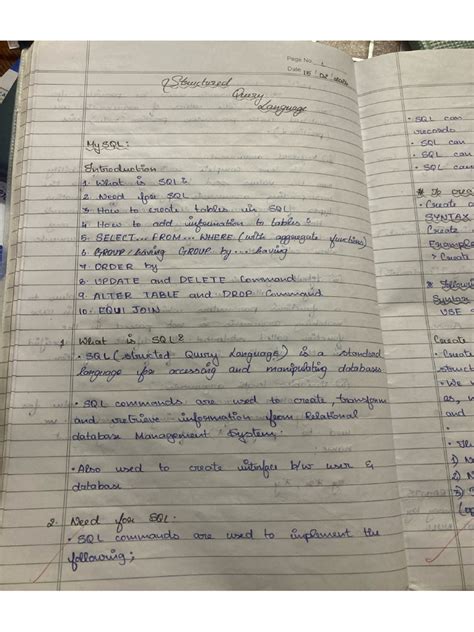 Page No. 1
Date 15 02
Structured
Query
Language
MySQL:
Introduction
1. What is SQL?
2. Need for SQL
3. How to create tables in SQL
4. How to add information to tables?
5. SELECT... FROM... WHERE (with aggregate functions)
6. GROUP/Having GROUP by... having
7. ORDER by
8. UPDATE and DELETE Command
9. ALTER TABLE and DROP Command
10. EQUI JOIN
1. What is SQL?
• SQL (structed Query Language) is a standard
language for accessing and manipulating databases
• SQL commands are used to create, transform
and retrieve information from Relational
database Management System;
• Also used to create interface b/w user &
database
2. Need for SQL.
• SQL commands are used to implement the
following;
• SQL can
records
• SQL can
• SQL can
# To crea
• Create a
SYNTAX
Create
> Create
Syntax
USE
Create
• Create
struct
• We
as,
and
• The
1)
2)
3)